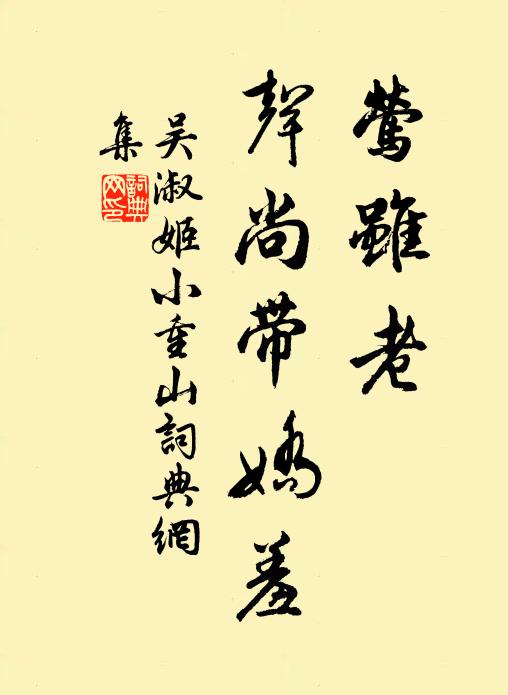 鶯雖老
聲尚帶嬌羞
吳淑姬小重山詞典網
集
詞典
网印